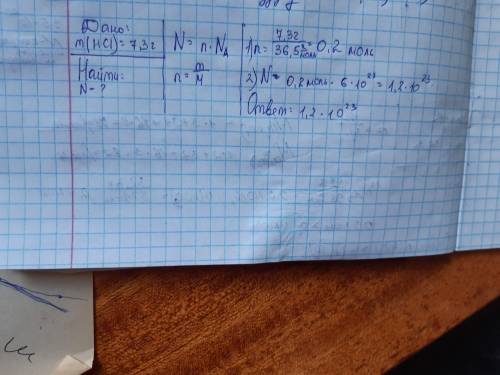 Дано:
m(HCl) = 7,3г
Найти:
N - ?
N = n · NA
n = m/M
1) n = 7,3г / 36,5 г/моль = 0,2 моль
2) N = 0,2 моль · 6 · 10²³ = 1,2 · 10²³
Ответ: 1,2 · 10²³